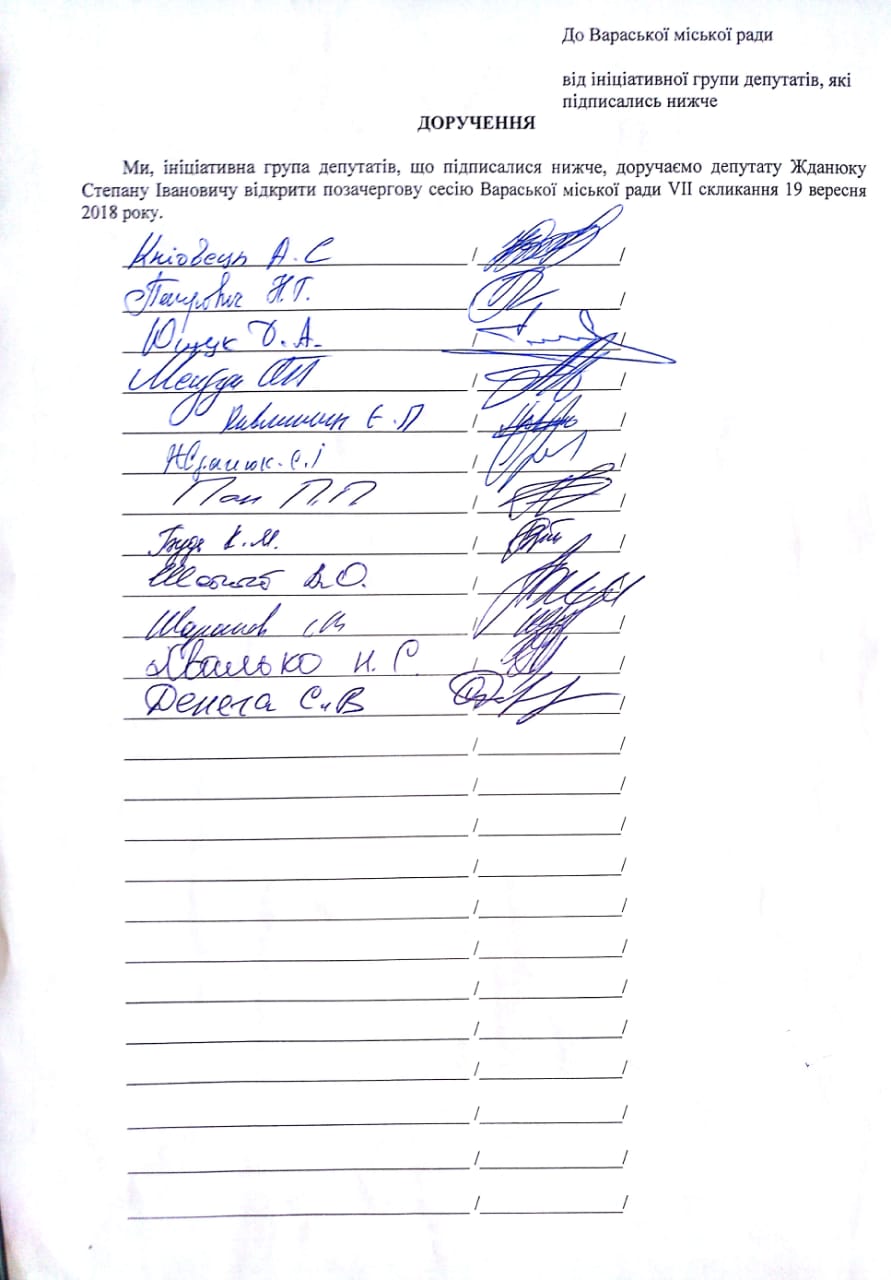 До Вараської міської ради
від ініціативної групи депутатів, які
підписались нижче
ДОРУЧЕННЯ
Ми, ініціативна група депутатів, що підписалися нижче, доручаємо депутату Жданюку
Степану Івановичу відкрити позачергову сесію Вараської міської ради VII скликання 19 вересня
2018 року.
Кніовець А.С
Петрович Н.Г.
Ющук Д.А.
Павлишин Є.П
Жданюк С.І
Пан П.П
Буда К.М.
Шарапов
Хвалько Н.С.
Денега С.В